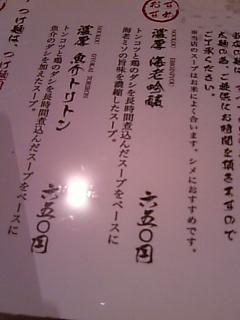 おすすめ
太麺の為、ご提供にお時間を頂きますので
ご了承ください。
※当店のスープはお米によく合います。シメにおすすめです。
NOUKOU EBIGINJYOU
濃厚 海老吟醸
トンコツと鶏のダシを長時間煮込んだスープをベースに
海老ミソの旨味を濃縮したスープ。
六五〇円
NOUKOU GYOKAI TORITON
濃厚 魚介トリトン
トンコツと鶏のダシを長時間煮込んだスープをベースに
魚介のダシを加えたスープ。
六五〇円
つけ麺は、つけ麺